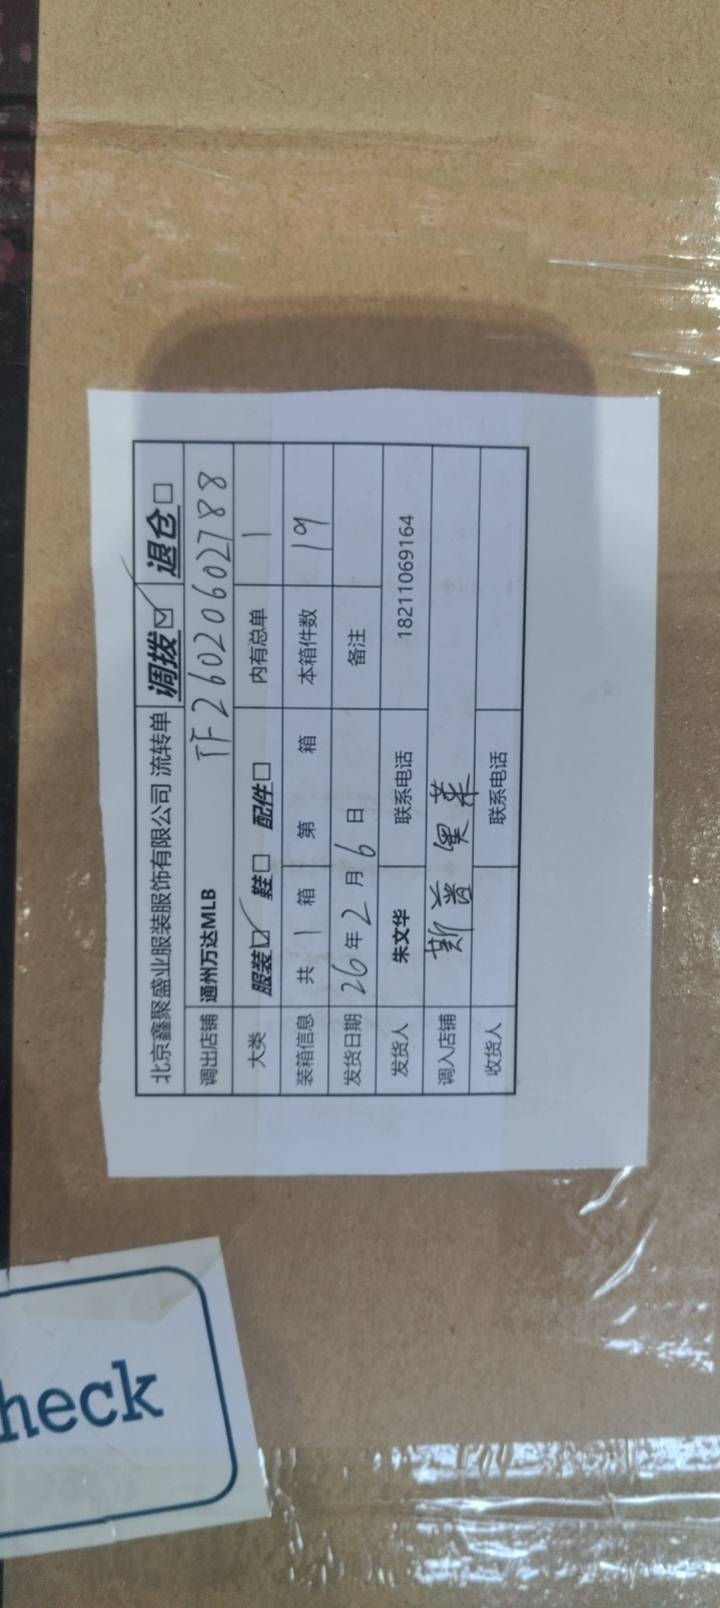 北京鑫聚盛业服装服饰有限公司 流转单 调拨☑ 退仓□
调出店铺 通州万达MLB TF260206602788
大类 服装☑ 鞋□ 配件□ 内有总单 1
装箱信息 共 1 箱 第 箱 本箱件数 19
发货日期 26年2月6日 备注
发货人 朱文华 联系电话 18211069164
调入店铺 斯普奥莱
收货人 联系电话
heck